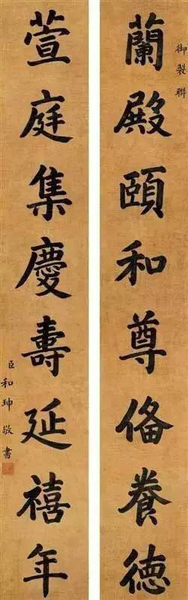 御製聯
蘭殿頤和尊俻養德
萱庭集慶壽延禧年
臣和珅敬書